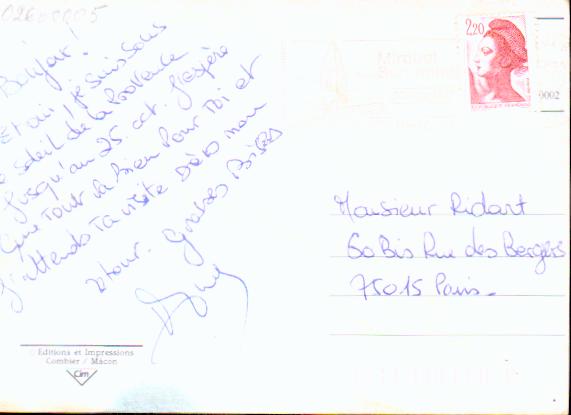 02600005
Bonjour!
Et oui, je suis sous
le soleil de la Provence
jusqu'au 25 oct. J'espère
que tout va bien pour toi et
j'attends ta visite dès mon
retour. Grosses bises
2,20
REPUBLIQUE FRANCAISE
0002
Monsieur Ridart
60 Bis Rue des Bergers
75015 Paris
Editions et Impressions
Combier / Mâcon
Cim